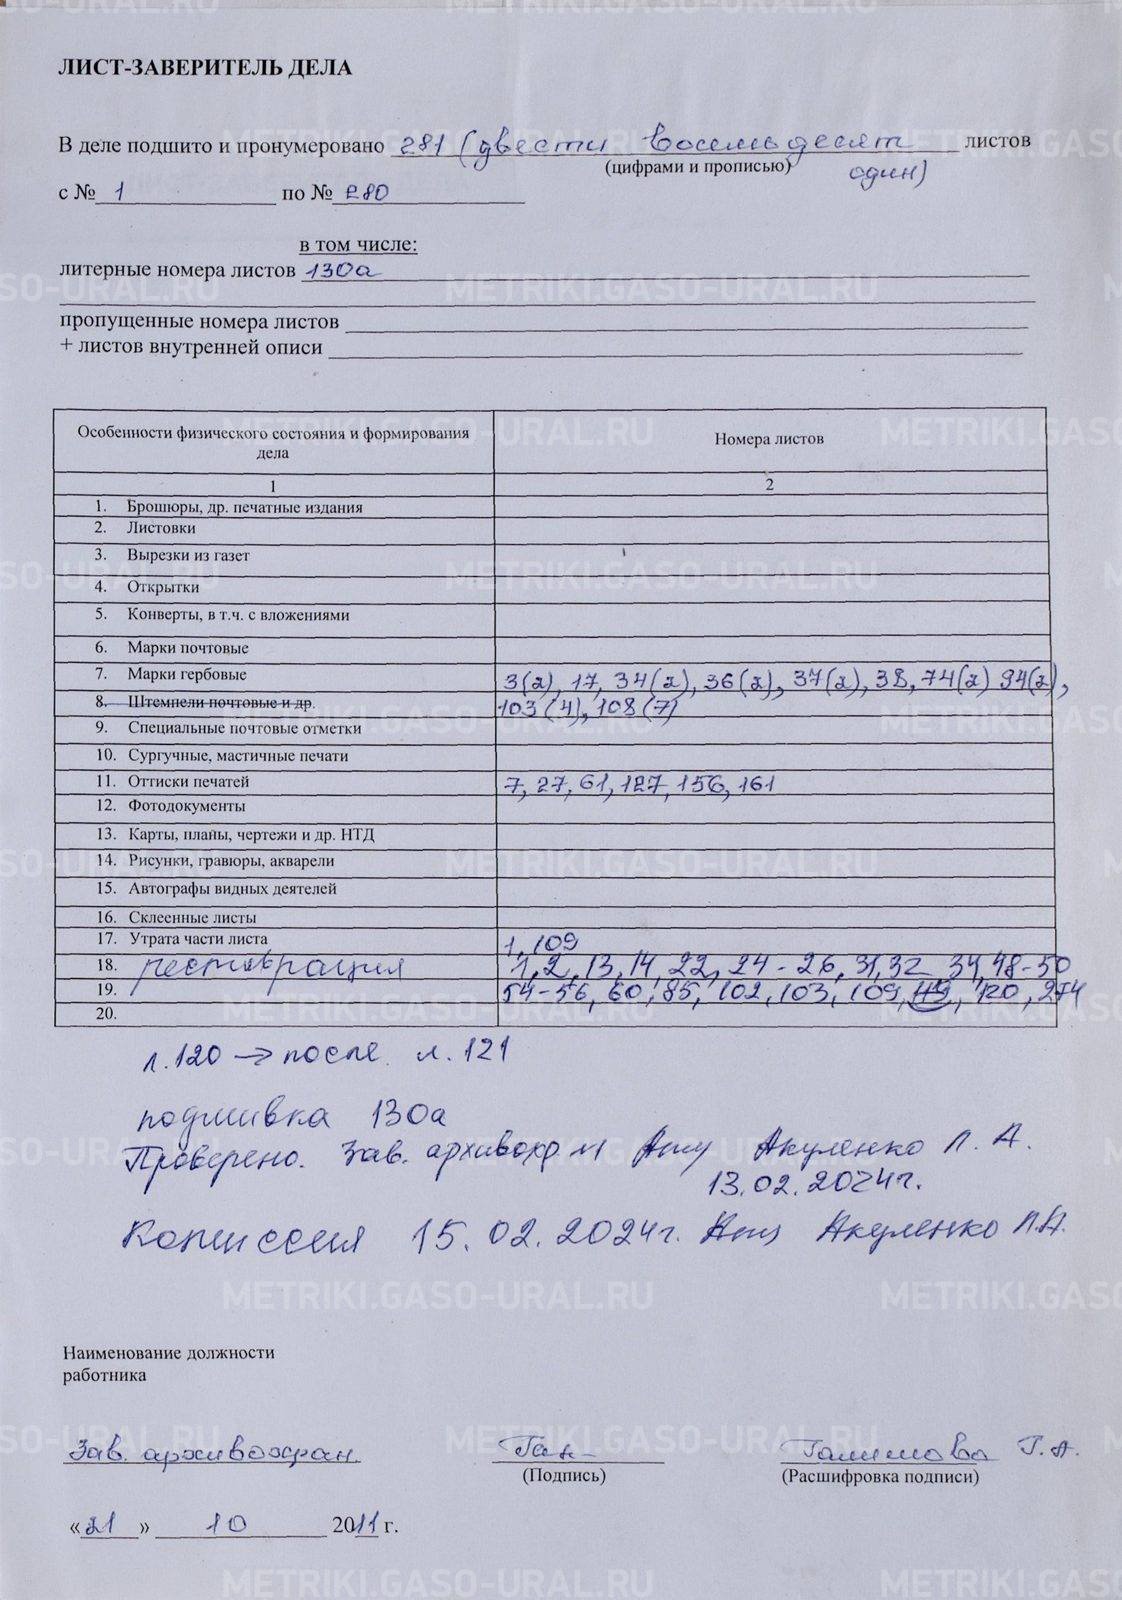 ЛИСТ-ЗАВЕРИТЕЛЬ ДЕЛА
В деле подшито и пронумеровано 281 (двести восемьдесят листов
(цифрами и прописью) один)
с № 1 по № 280
в том числе:
литерные номера листов 130а
пропущенные номера листов
+ листов внутренней описи
Особенности физического состояния и формирования дела Номера листов
1 2
1. Брошюры, др. печатные издания
2. Листовки
3. Вырезки из газет
4. Открытки
5. Конверты, в т.ч. с вложениями
6. Марки почтовые
7. Марки гербовые 3(2), 17, 34(2), 36(2), 37(2), 38, 74(2) 94(2),
8. Штемпели почтовые и др. 103(4), 108(7)
9. Специальные почтовые отметки
10. Сургучные, мастичные печати
11. Оттиски печатей 7, 27, 61, 127, 156, 161
12. Фотодокументы
13. Карты, планы, чертежи и др. НТД
14. Рисунки, гравюры, акварели
15. Автографы видных деятелей
16. Склеенные листы
17. Утрата части листа 1, 109
18. реставрация 1, 2, 13, 14, 22, 24-26, 31, 32 34, 48-50
19. 54-56, 60, 85, 102, 103, 109, 119, 120, 274
20.
л. 120 → после л. 121
подшивка 130а
Проверено. Зав. архивохр м Акуленко Л. А.
13.02.2024г.
Комиссия 15.02.2024г. Акуленко Л.А.
Наименование должности
работника
Зав. архивохран. Гал- Галимова Г. А.
(Подпись) (Расшифровка подписи)
«21» 10 2011 г.
METRIKI.GASO-URAL.RU